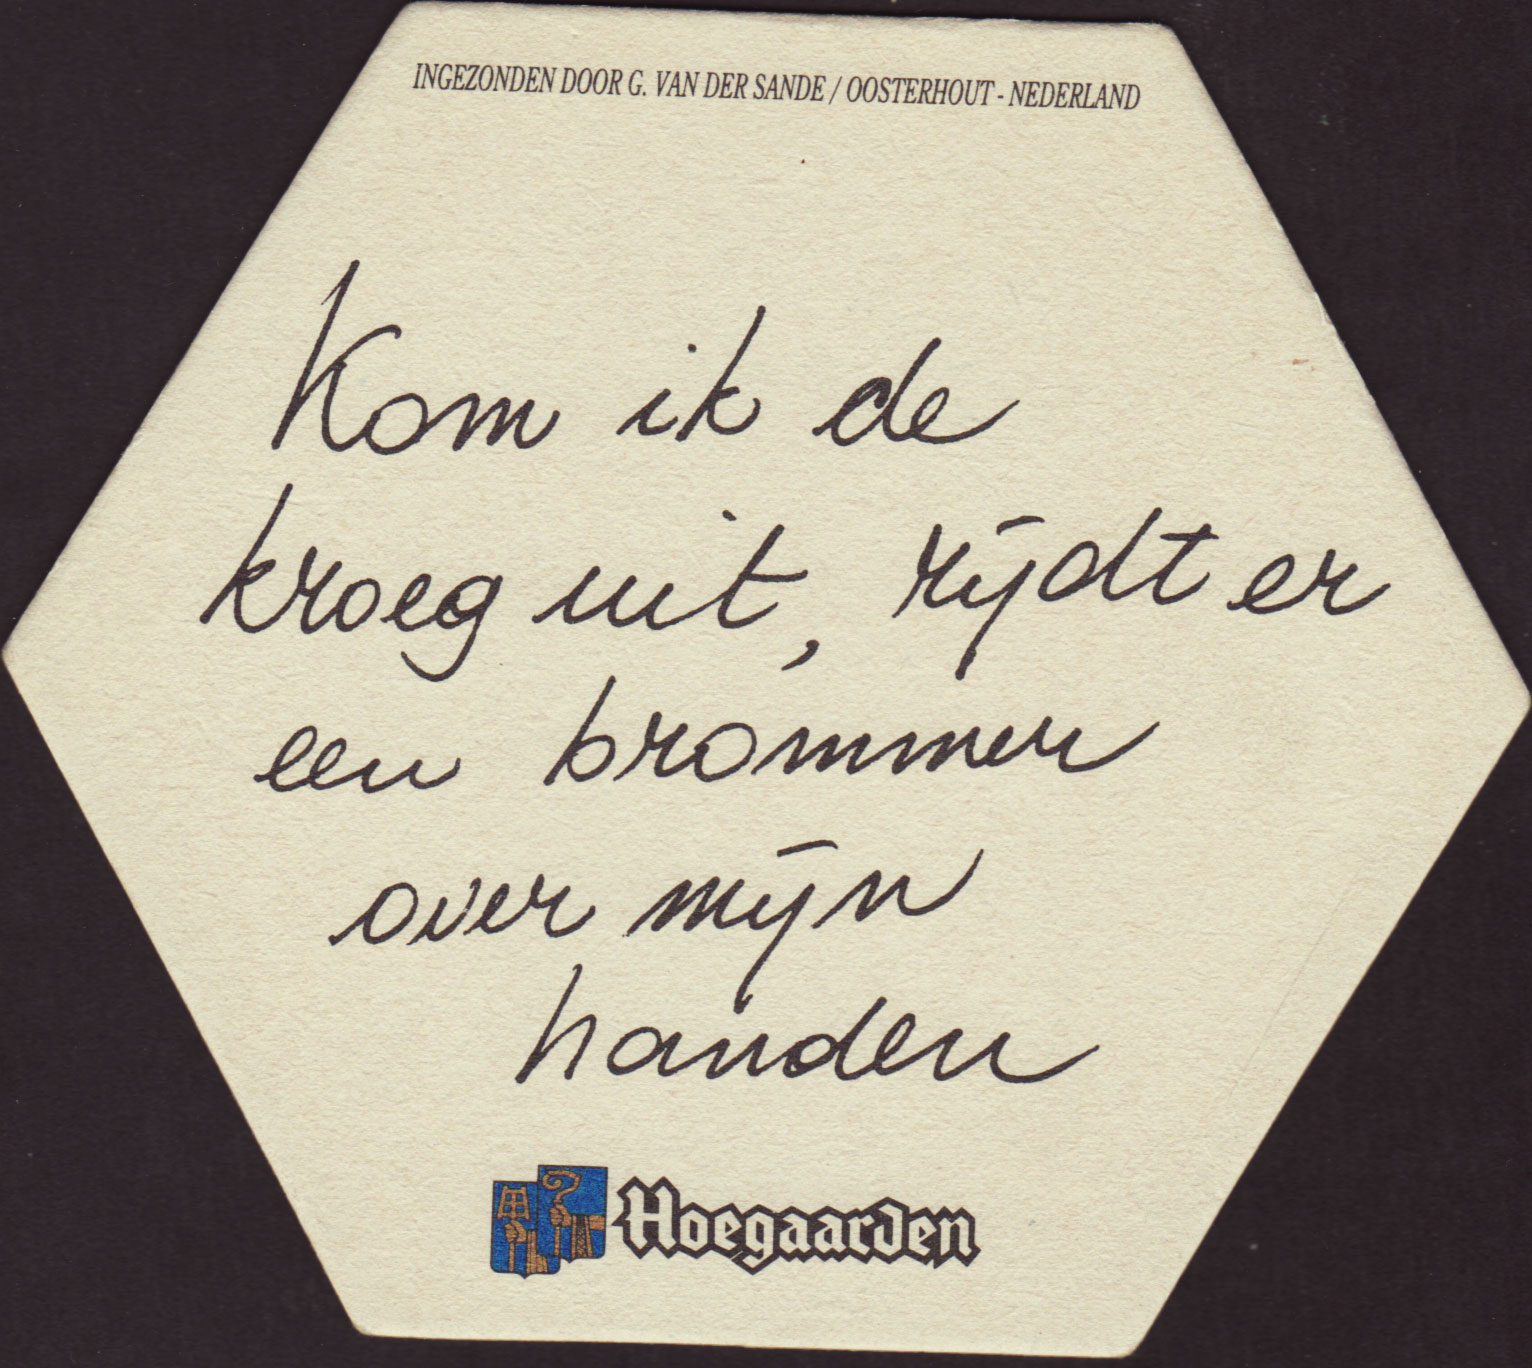 INGEZONDEN DOOR G. VAN DER SANDE / OOSTERHOUT - NEDERLAND
Kom ik de
kroeg uit, rijdt er
een brommer
over mijn
handen
Hoegaarden